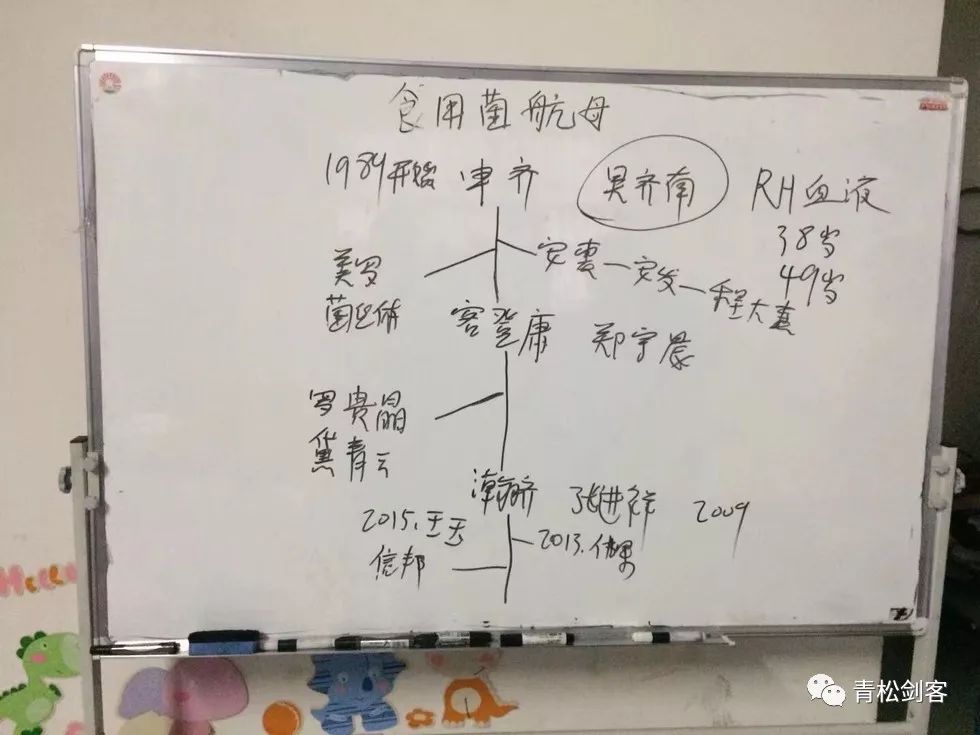 食用菌航母
1984开始 申齐 吴齐南 RH血液
38岁
49岁
美罗 安惠一安发一程大喜
菌丝体 客登康 郑宇晨
罗贵晶
黛青云
瀚齐 张进祥 2009
2015.王玉 2013.
信邦
Hello
青松剑客